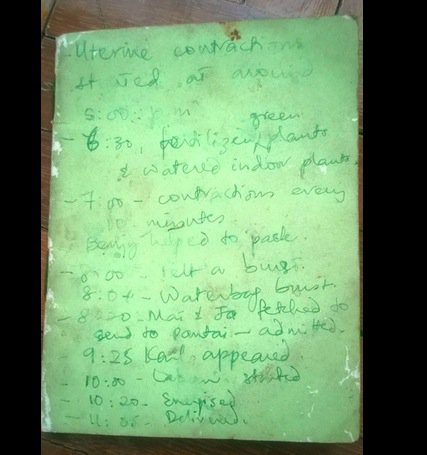 - Uterine contractions
started at around
5:00 p.m
green
- 6:30, fertilizer, plants
& watered indoor plants.
- 7:00 - contractions every
10 minutes.
helped to pack.
- 8:00 - felt a burst.
8:04 - Waterbag burst.
- 8:20 - Mai & Ja fetched to
send to Pantai - admitted.
- 9:25 appeared.
- 10:00 - started
- 10:20 - Energised
- 11: - Delivered.